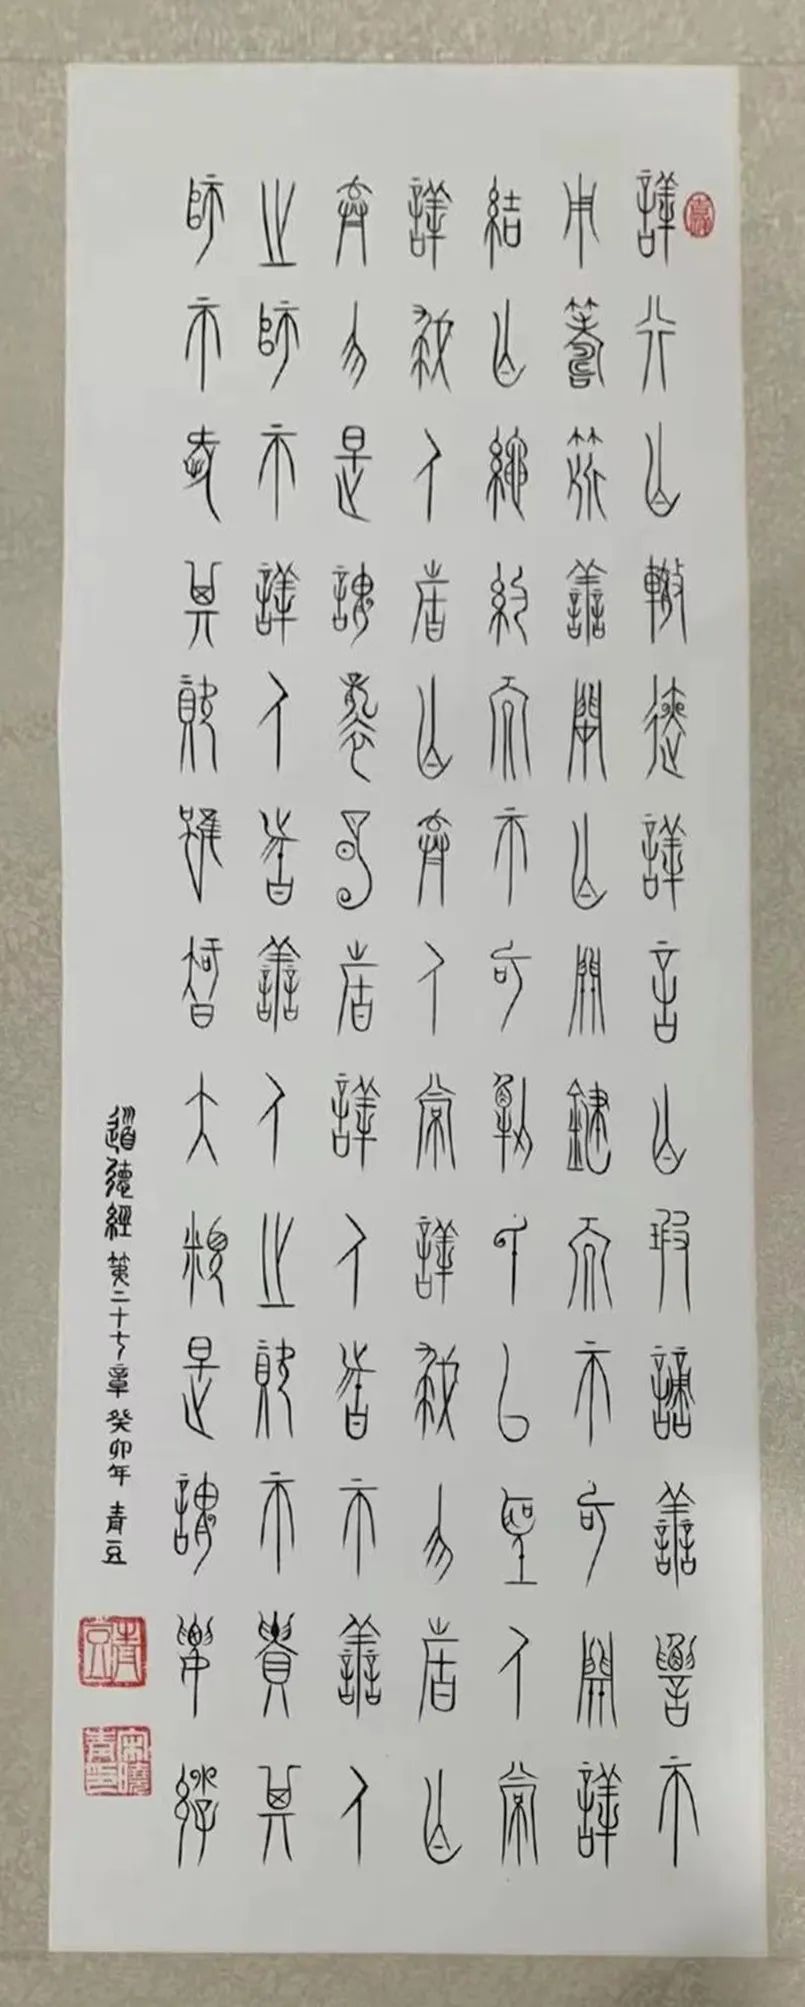 善行亡轍迹善言亡瑕謫善數不
用籌策善閉亡關鍵而不可開善
結亡繩約而不可解也以聖人常
善救人故亡棄人常善救物故亡
棄物是謂襲明故善人者不善人
之師不善人者善人之資不貴其
師不愛其資雖智大迷是謂要妙
道德經第二十七章癸卯年青豆
青豆